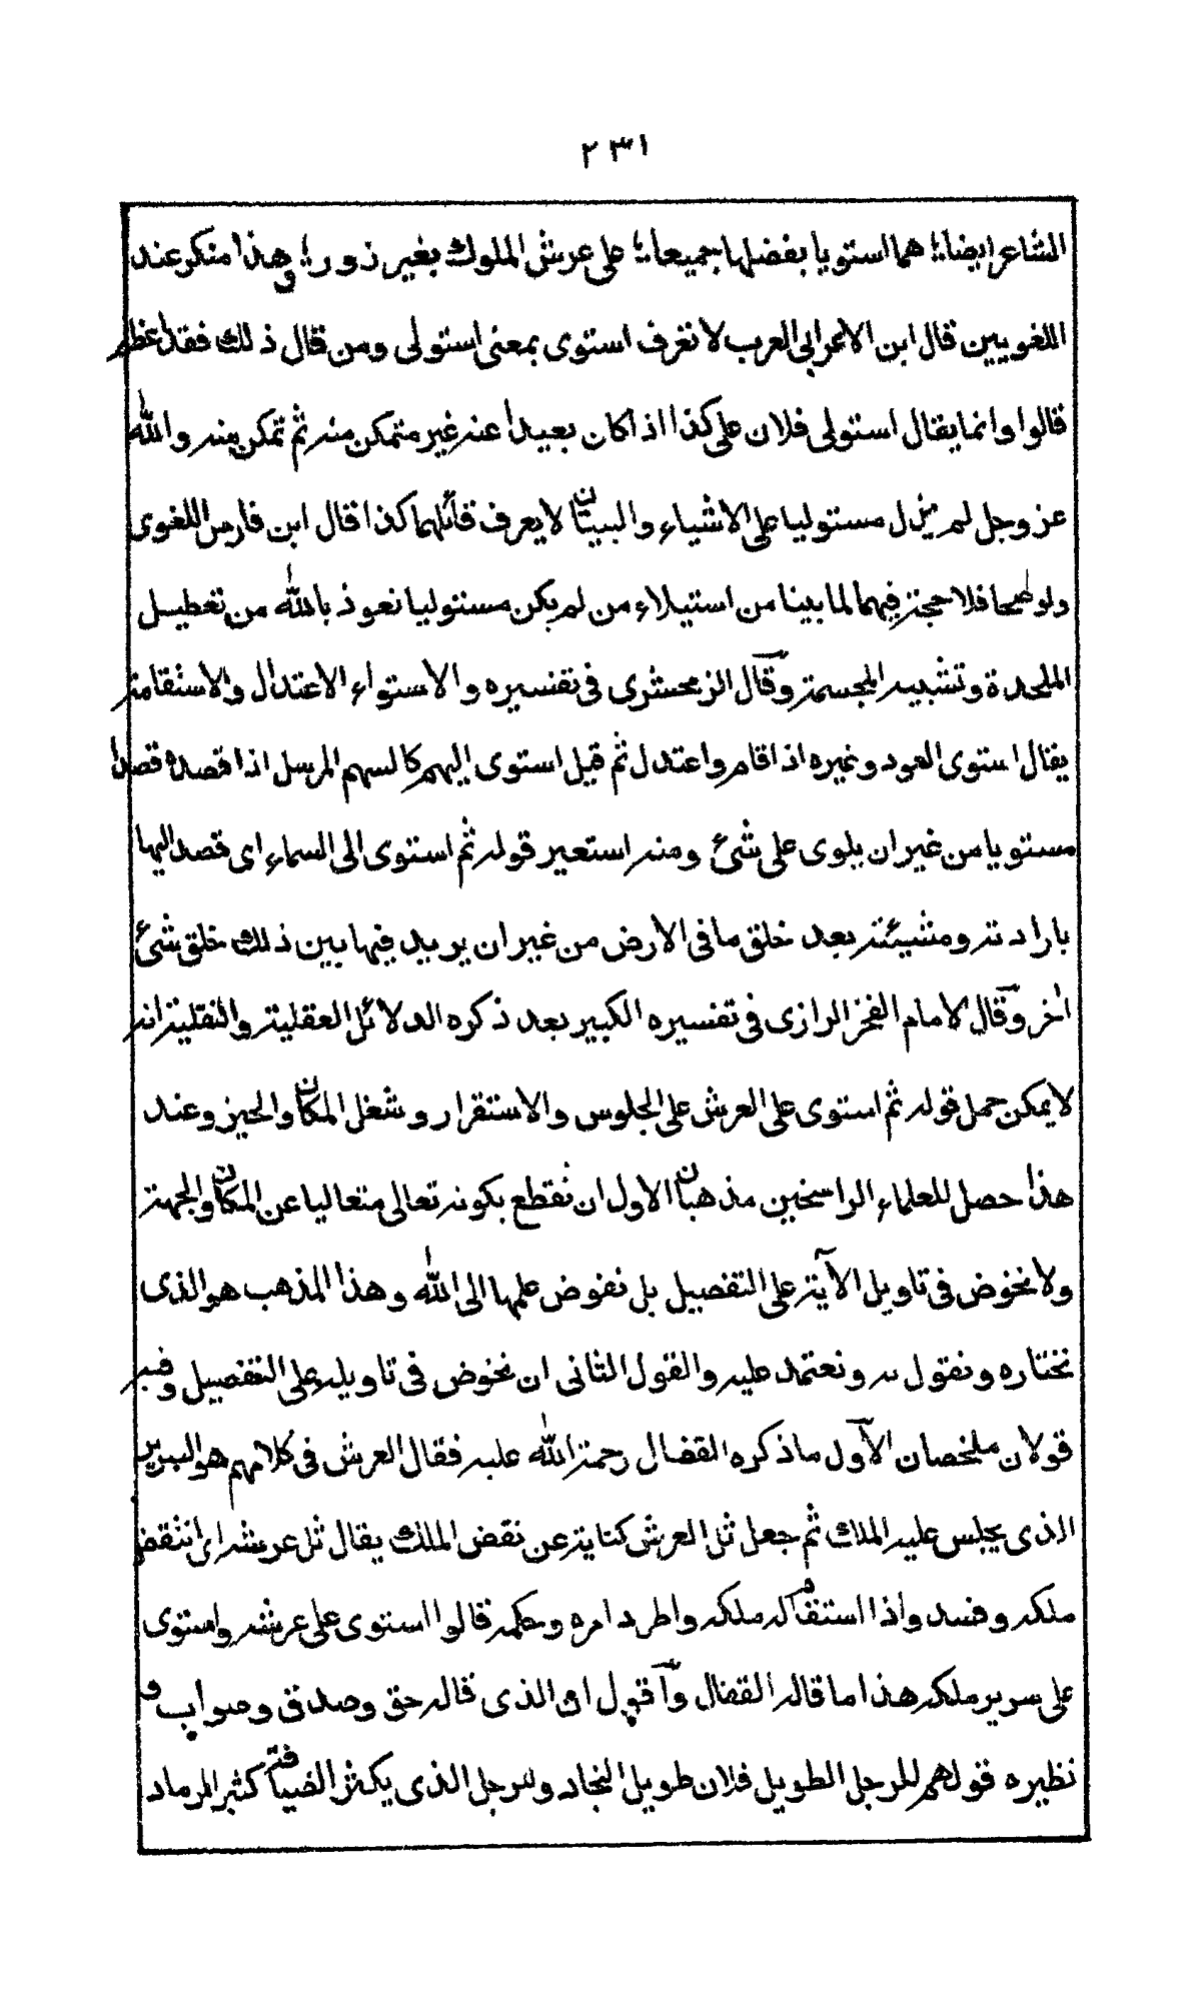 ٢٣١
الشاعر ايضا؛ هما استويا بفضلهما جميعا؛ على عرش الملوك بغير زور؛ وهذا منكر عند
اللغويين قال ابن الاعرابى العرب لا نعرف استوى بمعنى استولى ومن قال ذلك فقد اعظم
قالوا وانما يقال استولى فلان على كذا اذا كان بعيدا عنه غير متمكن منه ثم تمكن منه والله
عز وجل لم يزل مستوليا على الاشياء والبيتان لا يعرف قائلهما كذا قال ابن فارس اللغوى
ولو صحا فلا حجة فيهما لما بينا من استيلاء من لم يكن مستوليا نعوذ بالله من تعطيل
الملحدة وتشبيه المجسمة وقال الزمخشرى فى تفسيره والاستواء الاعتدال والاستقامة
يقال استوى العود وغيره اذا قام واعتدل ثم قيل استوى اليهم كالسهم المرسل اذا قصده قصدا
مستويا من غير ان يلوى على شئ ومنه استعير قوله ثم استوى الى السماء اى قصد اليها
بارادته ومشيئته بعد خلق ما فى الارض من غير ان يريد فيما بين ذلك خلق شئ
اٰخر وقال الامام الفخر الرازى فى تفسيره الكبير بعد ذكره الدلائل العقلية والنقلية انه
لا يمكن حمل قوله ثم استوى على العرش على الجلوس والاستقرار وشغل المكان والحيز وعند
هذا حصل للعلماء الراسخين مذهبان الاول ان نقطع بكونه تعالى متعاليا عن المكان والجهة
ولا نخوض فى تاويل الآية على التفصيل بل نفوض علمها الى الله وهذا المذهب هو الذى
نختاره ونقول به ونعتمد عليه والقول الثانى ان نخوض فى تاويله على التفصيل وفيه
قولان ملخصان الآول ما ذكره القفال رحمة الله عليه فقال العرش فى كلامهم هو السرير
الذى يجلس عليه الملك ثم جعل ثل العرش كناية عن نقض الملك يقال ثل عرشه اى انتقض
ملكه وفسد واذا استقام له ملكه واطرد امره وحكمه قالوا استوى على عرشه واستوى
على سرير ملكه هذا ما قاله القفال وآقول ان الذى قاله حق وصدق وصواب و
نظيره قولهم للرجل الطويل فلان طويل النجاد وللرجل الذى يكثر الضيافة كثير الرماد